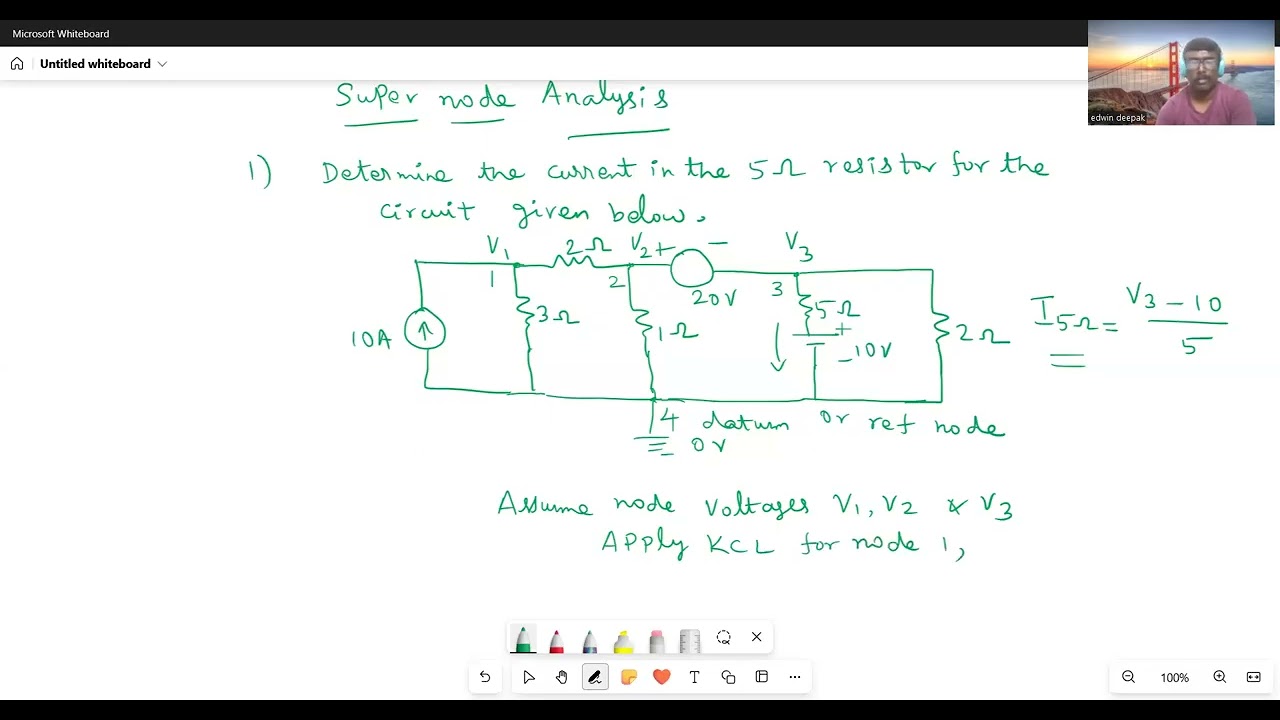 Microsoft Whiteboard
Untitled whiteboard
edwin deepak
Super node Analysis
1) Determine the current in the 5Ω resistor for the
circuit given below.
V1 2Ω V2 + - V3
1 2 20V 3
10A 3Ω 1Ω 5Ω + - 10V 2Ω
I5Ω = V3 - 10 / 5
4 datum or ref node
0V
Assume node voltages V1, V2 & V3
Apply KCL for node 1,
100%